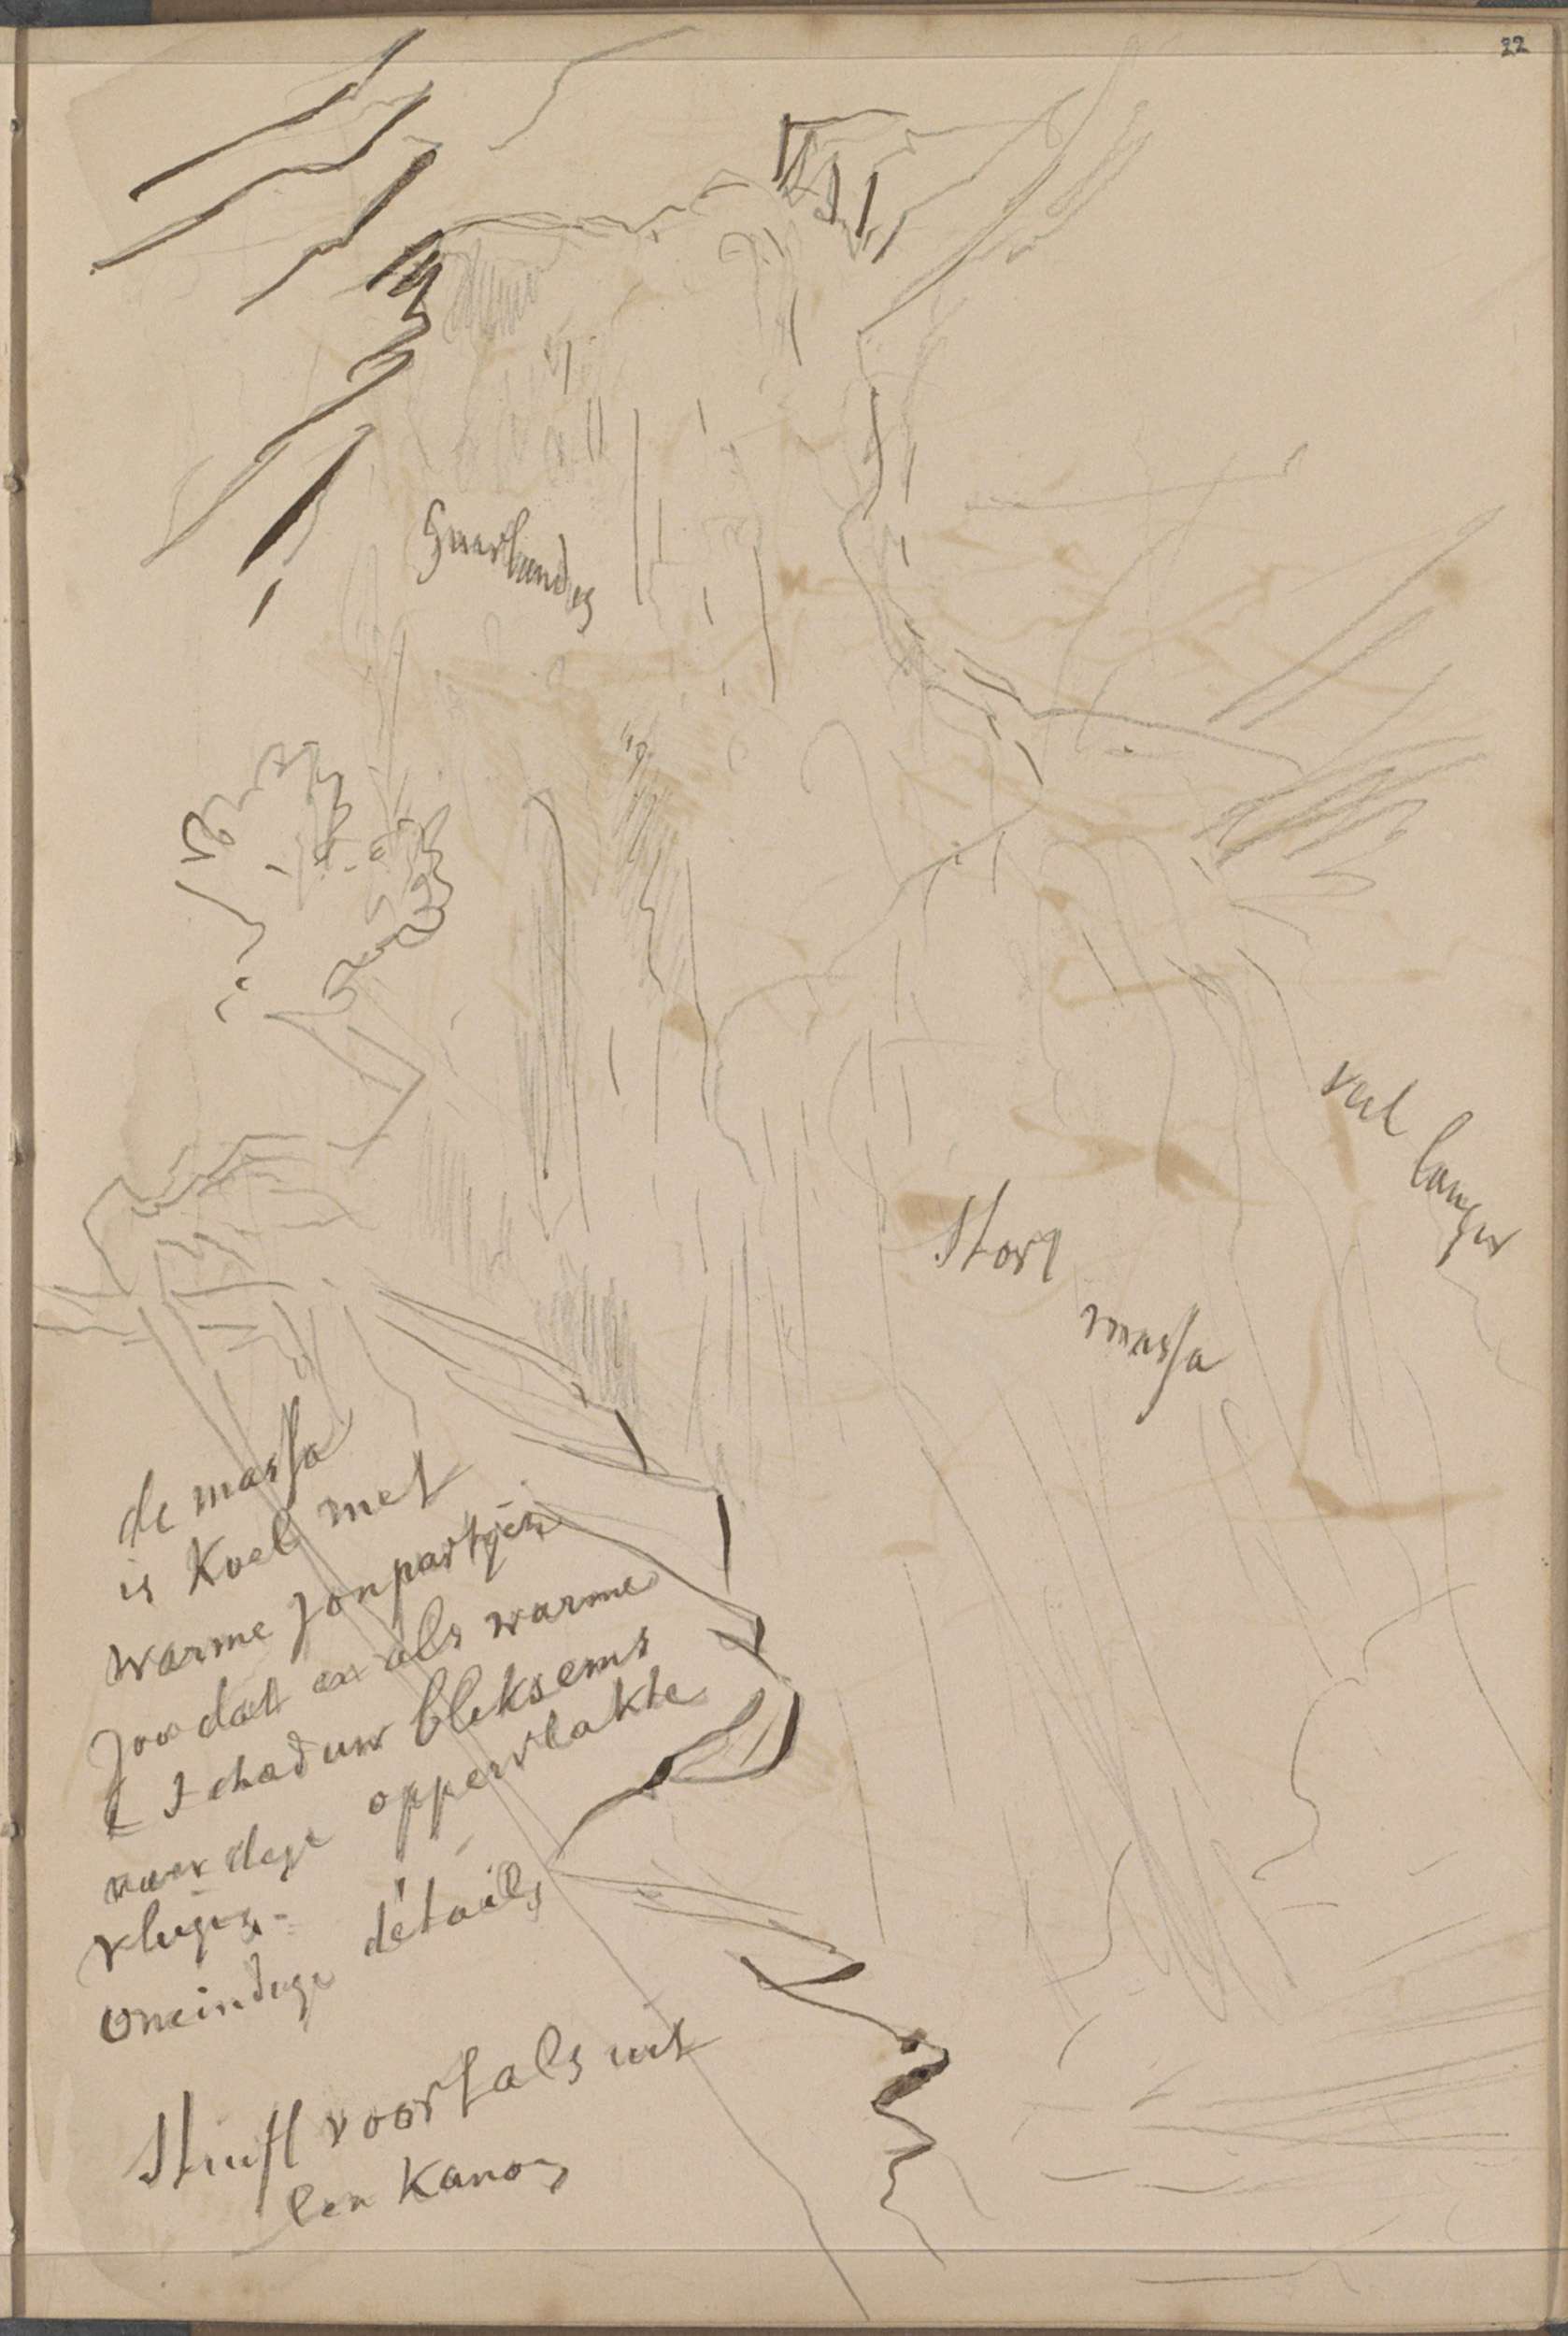 22
Guerlandes
veel
langer
Stort
massa
de massa
is Koel met
warme zonpartijen
zoodat er als warme
& Schaduw bliksems
over deze oppervlakte
vliegen -
oneindige détails
Stuift voort als uit
een Kanon